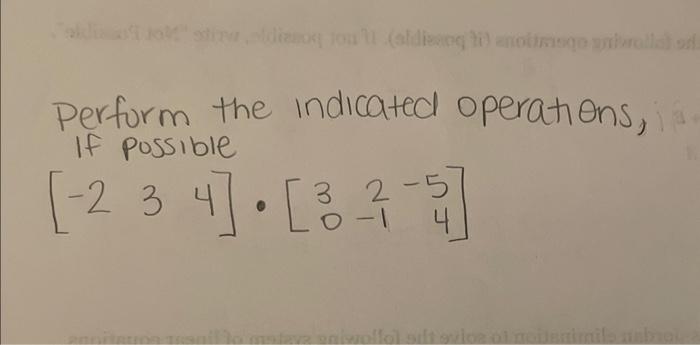 Perform the indicated operations,
If possible
[-2 3 4] · [3 2 -5
0 -1 4]